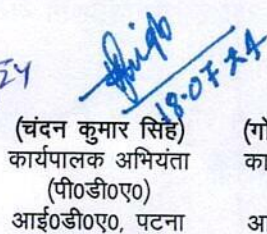 18.07.24
(चंदन कुमार सिंह)
कार्यपालक अभियंता
(पी०डी०ए०)
आई०डी०ए०, पटना